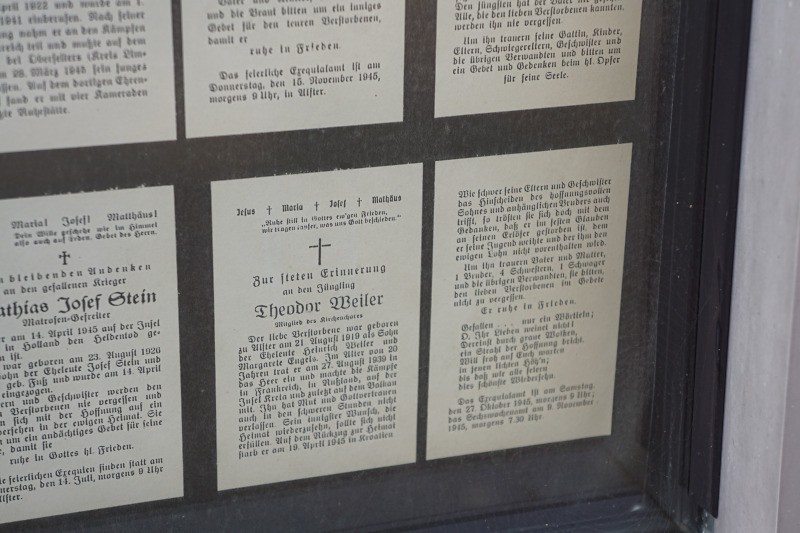 april 1922 und wurde am 1.
1941 einberufen. Nach seiner
ung nahm er an den Kämpfen
reich teil und mußte auf dem
bei Oberselters (Kreis Lim-
28. März 1945 sein junges
ssen. Auf dem dortigen Ehren-
fand er mit vier Kameraden
tzte Ruhestätte.
und die Braut bitten um ein inniges
Gebet für den teuren Verstorbenen,
damit er
ruhe in Frieden.
Das feierliche Exequialamt ist am
Donnerstag, den 15. November 1945,
morgens 9 Uhr, in Alfter.
Alle, die den lieben Verstorbenen kannten,
werden ihn nie vergessen.
Um ihn trauern seine Gattin, Kinder,
Eltern, Schwiegereltern, Geschwister und
die übrigen Verwandten und bitten um
ein Gebet und Gedenken beim hl. Opfer
für seine Seele.
Maria! Josef! Matthäus!
Dein Wille geschehe wie im Himmel
also auch auf Erden. Gebet des Herrn.
bleibenden Andenken
an den gefallenen Krieger
athias Josef Stein
Matrosen-Gefreiter
er am 14. April 1945 auf der Insel
in Holland den Heldentod ge-
n ist.
war geboren am 23. August 1926
ohn der Eheleute Josef Stein und
geb. Fuß und wurde am 14. April
eingezogen.
ern und Geschwister werden den
Verstorbenen nie vergessen und
n sich mit der Hoffnung auf ein
ersehen in der ewigen Heimat. Sie
n um ein andächtiges Gebet für seine
e, damit sie
ruhe in Gottes hl. Frieden.
ie feierlichen Exequien finden statt am
nerstag, den 14. Juli, morgens 9 Uhr
Alfter.
Jesus † Maria † Josef † Mathäus
"Ruhe still in Gottes ew'gen Frieden,
wir tragen was uns Gott beschieden"
Zur steten Erinnerung
an den Jüngling
Theodor Weiler
Mitglied des Kirchenchores
Der liebe Verstorbene war geboren
zu Alfter am 21. August 1919 als Sohn
der Eheleute Heinrich Weiler und
Margarete Engels. Im Alter von 20
Jahren trat er am 27. August 1939 in
das Heer ein und machte die Kämpfe
in Frankreich, in Rußland, auf der
Insel Kreta und zuletzt auf dem Balkan
mit. Ihn hat Mut und Gottvertrauen
auch in den schweren Stunden nicht
verlassen. Sein innigster Wunsch, die
Heimat wiederzusehn, sollte sich nicht
erfüllen. Auf dem Rückzug zur Heimat
starb er am 19. April 1945 in Kroatien
Wie schwer seine Eltern und Geschwister
das Hinscheiden des hoffnungsvollen
Sohnes und anhänglichen Bruders auch
trifft, so trösten sie sich doch mit dem
Gedanken, daß er im festen Glauben
an seinen Erlöser gestorben ist, dem
er seine Jugend weihte und der ihm den
ewigen Lohn nicht vorenthalten wird.
Um ihn trauern Vater und Mutter,
1 Bruder, 4 Schwestern, 1 Schwager
und die übrigen Verwandten, sie bitten,
den lieben Verstorbenen im Gebete
nicht zu vergessen.
Er ruhe in Frieden.
Gefallen . . . nur ein Wörtlein;
O, Ihr Lieben weinet nicht!
Dereinst durch graue Wolken,
ein Strahl der Hoffnung bricht.
Will froh auf Euch warten
in jenen lichten Höh'n;
bis daß wir alle feiern
dies schönste Wiedersehn.
Das Exequialamt ist am Samstag,
den 27. Oktober 1945, morgens 9 Uhr;
das Sechswochenamt am 9. November
1945, morgens 7.30 Uhr.